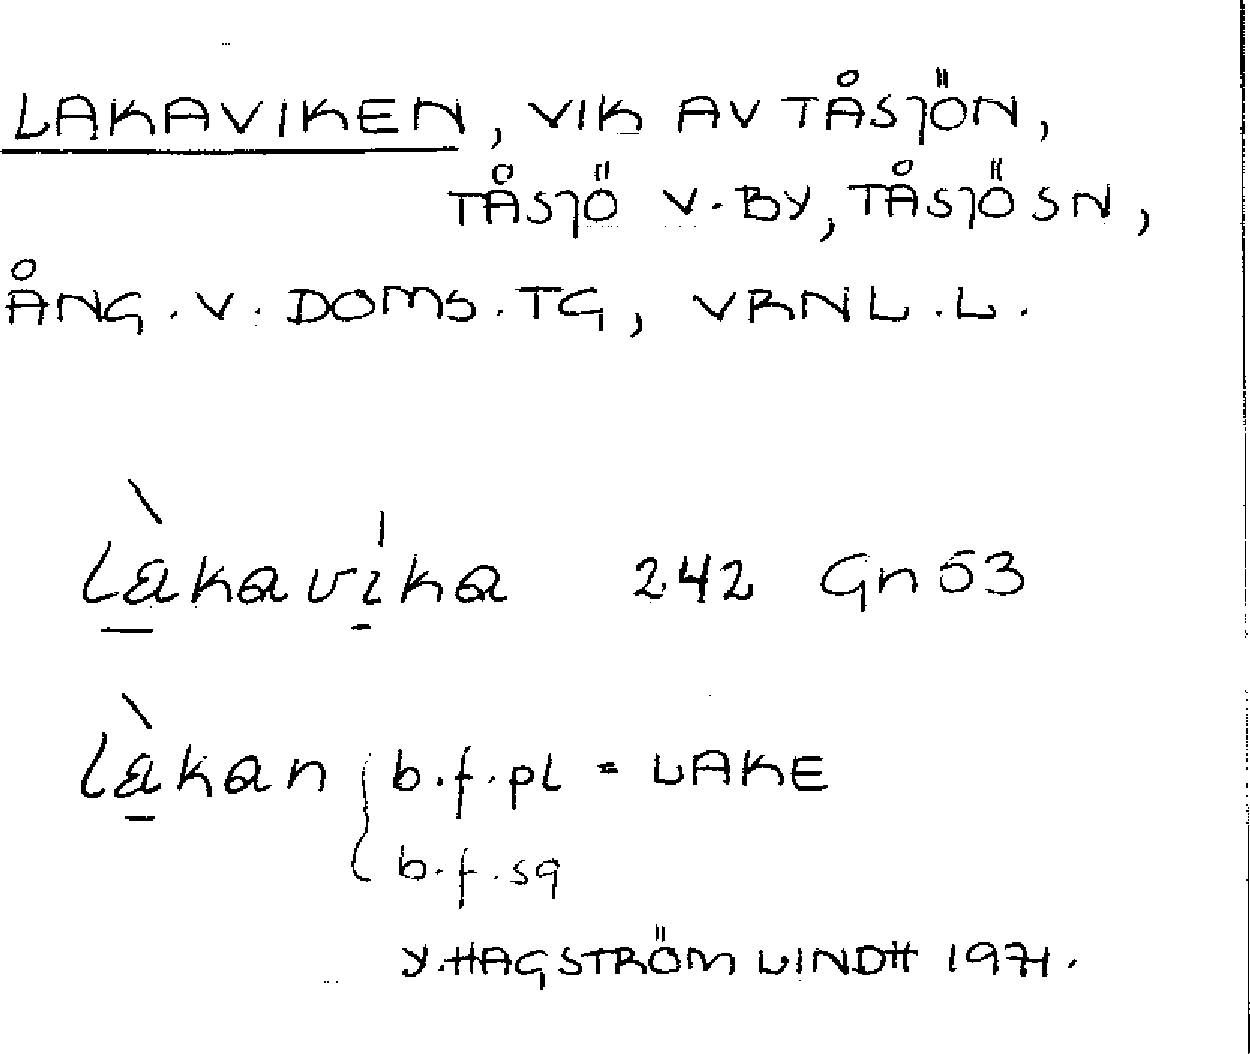 LAKAVIKEN, VIK AV TÅSJÖN,
TÅSJÖ V. BY, TÅSJÖ SN,
ÅNG. V. DOMS. TG, VRNL. L.
làkavika 242 Gn 53
làkan { b.f.pl = LAKE
b.f.sg
Y. HAGSTRÖM LINDH 1971.